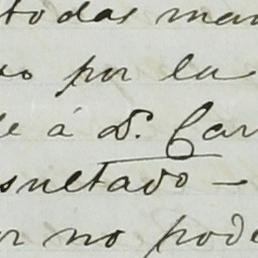 todas man
o por la
e á D. Car
sultado —
r no pod